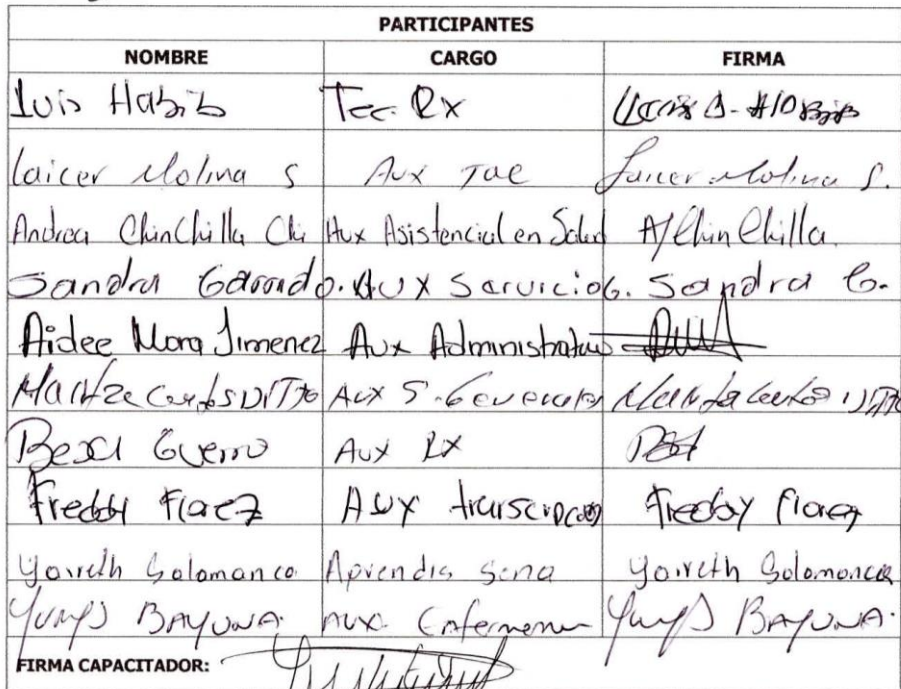 PARTICIPANTES
NOMBRE CARGO FIRMA
Luis Habib Tec. Rx Luis A. Habib
Laicer Molina S Aux TAC Laicer Molina S.
Andrea Chinchilla Chi Aux Asistencial en Salud A/Chinchilla.
Sandra Garando. Aux Servicio G. Sandra G.
Aidee Mora Jimenez Aux Administrativo
Aux S. Generales
Bexi Guerro Aux Rx
Freddy Florez Aux transcripcion Freddy Florez
Yoireth Salamanca Aprendis Sena Yoireth Salamanca
Yumys BAYUNA. Aux. Enfermeria Yumys BAYUNA.
FIRMA CAPACITADOR: